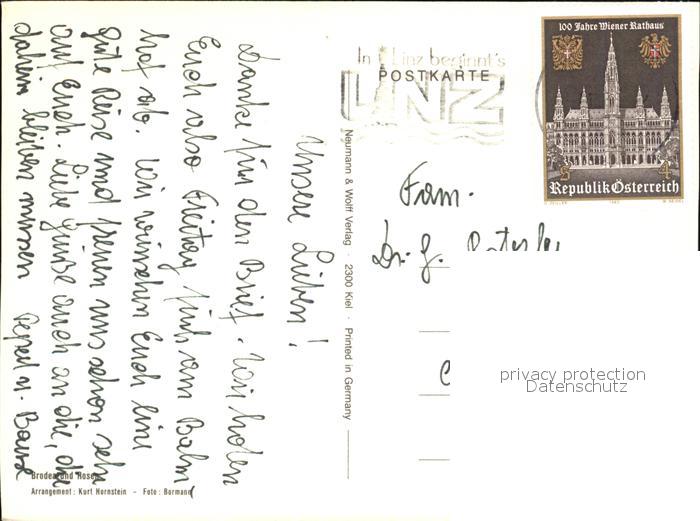 Unsere Lieben!
Danke für den Brief. Wir holen
Euch also Freitag früh am Bahn,
hof ab. Wir wünschen Euch eine
gute Reise und freuen uns schon sehr
auf Euch. Liebe Grüße auch an die, die
daheim bleiben müssen
Broder und Rosen
Arrangement: Kurt Hornstein - Foto: Bormann
Neumann & Wolff Verlag · 2300 Kiel · Printed in Germany
In Linz beginnt's
POSTKARTE
LINZ
100 Jahre Wiener Rathaus
S 4
Republik Österreich
Fam.
Dr. G.
privacy protection
Datenschutz